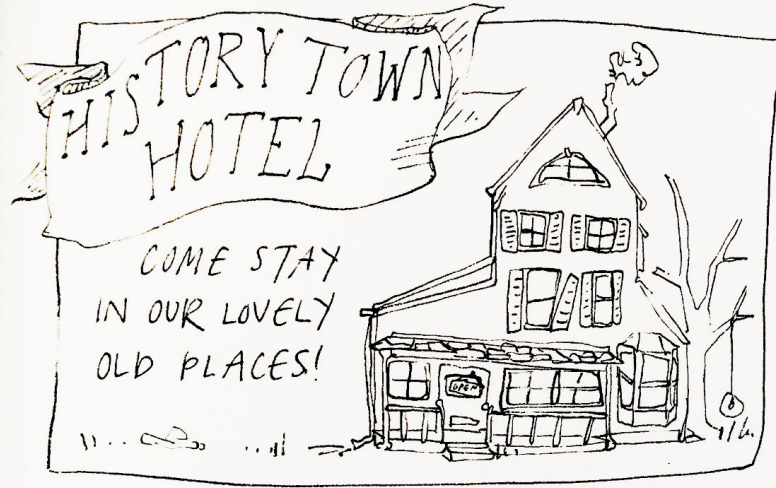 HISTORY TOWN
HOTEL
COME STAY
IN OUR LOVELY
OLD PLACES!
OPEN